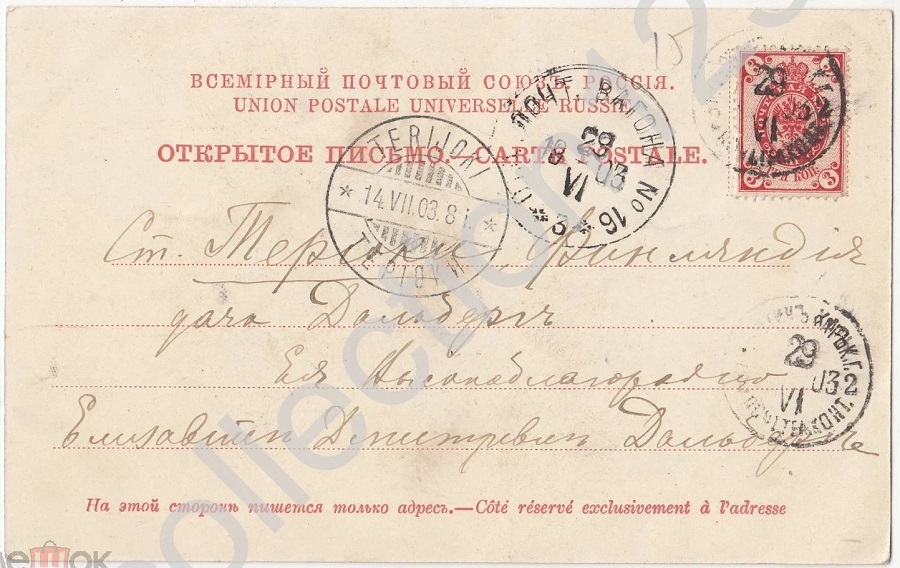 15
ВСЕМІРНЫЙ ПОЧТОВЫЙ СОЮЗЪ. РОССІЯ.
UNION POSTALE UNIVERSELLE. RUSSIE.
ОТКРЫТОЕ ПИСЬМО.—CARTE POSTALE.
ПОЧТ. ВАГОНА № 16
29
VI
03
*3*
TERIJOKI
14.VII.03. 8 i
ТЕРІОКИ
3 3
29
VI
3 3
Ст. Теріоки Финляндія
дача Дальбергъ
Ея Высокоблагородію
Елизаветѣ Дмитріевнѣ Дальбергъ
29
VI
03 2
ПОЧТ.ТЕЛ.КОНТ.
На этой сторонѣ пишется только адресъ.—Côté réservé exclusivement à l'adresse
collection